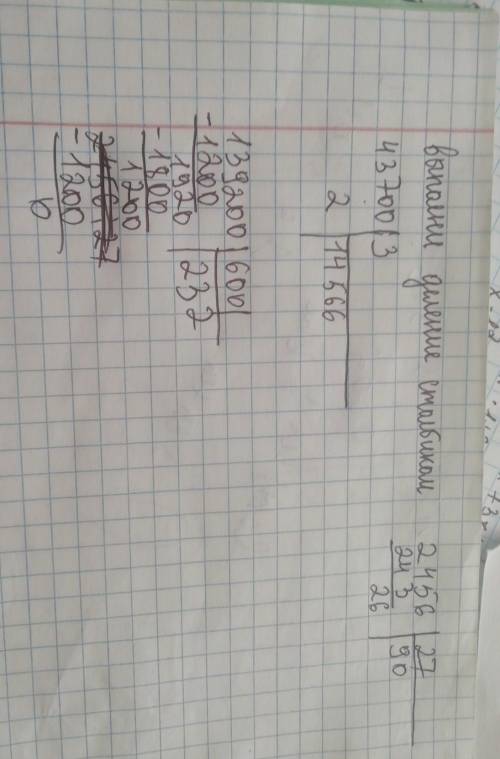 выполни деление столбиком
43700 3
2 14566
2456 27
243 90
26
139200 600
-1200 232
1920
-1800
1200
-1200
0